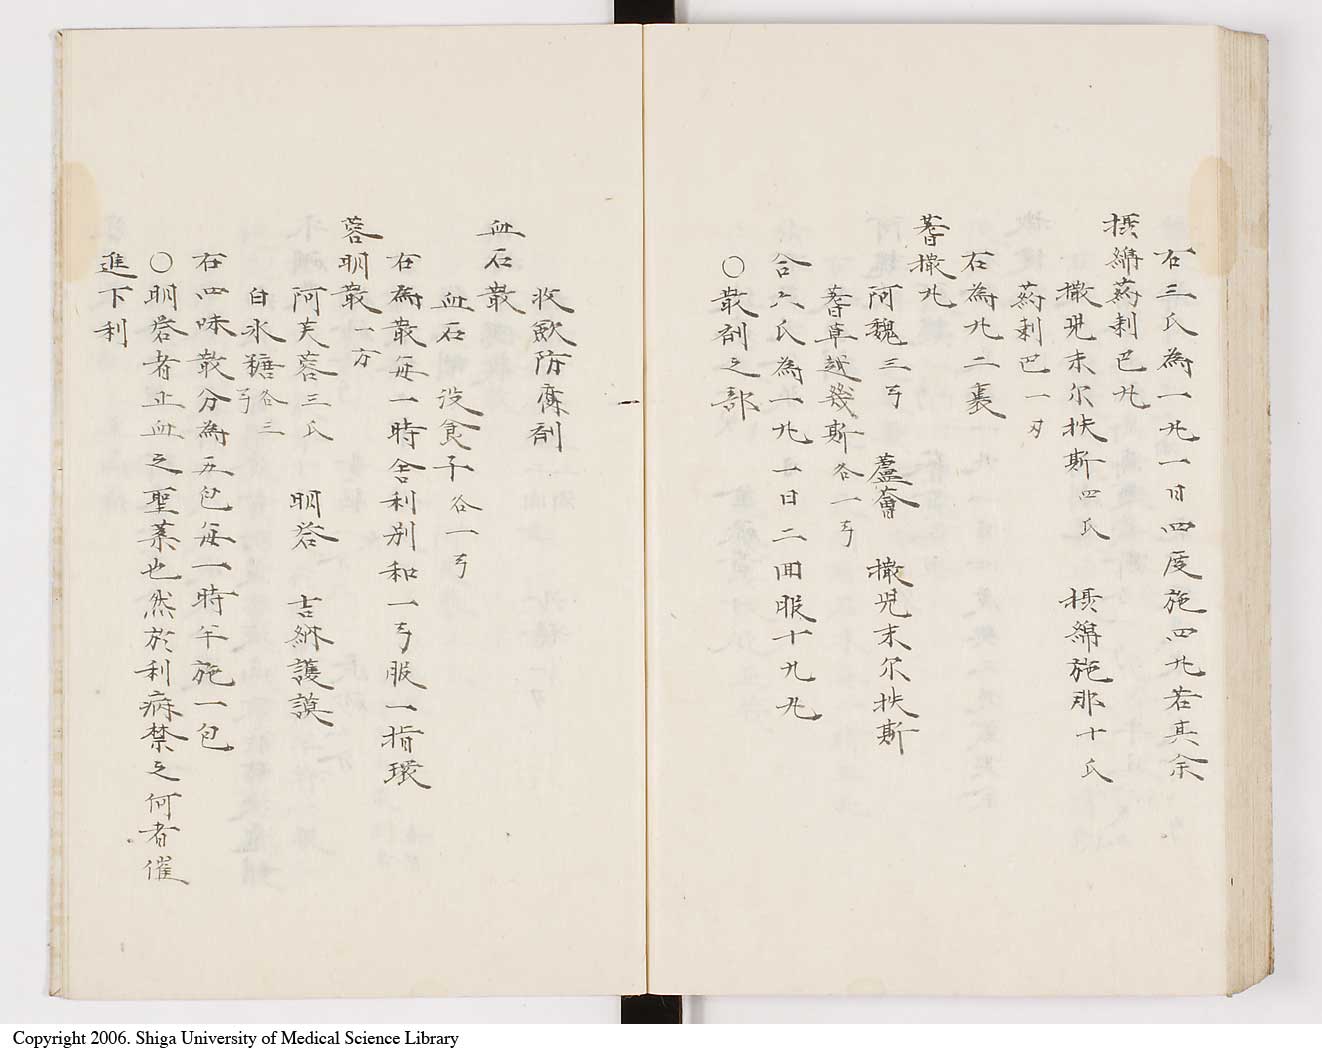 右三氏為一丸一日四度施四丸若其余
摂綿葯剌巴丸
撒児末尓扶斯四氏 摂綿施那十氏
葯剌巴一匁
右為丸二裹
蓍撒丸
阿魏三弓 蘆薈 撒児末尓扶斯
蓍草越幾斯各一弓
合六氏為一丸一日二回服十九丸
○散剤之部
収斂防腐剤
血石散
血石 没食子各一弓
右為散毎一時舎利別和一弓服一指環
蓉明散一方
阿芙蓉三氏 明礬 吉納護謨
白氷糖各三弓
右四味散分為五包毎一時半施一包
○明礬者止血之聖薬也然於利病禁之何者催
進下利
Copyright 2006. Shiga University of Medical Science Library